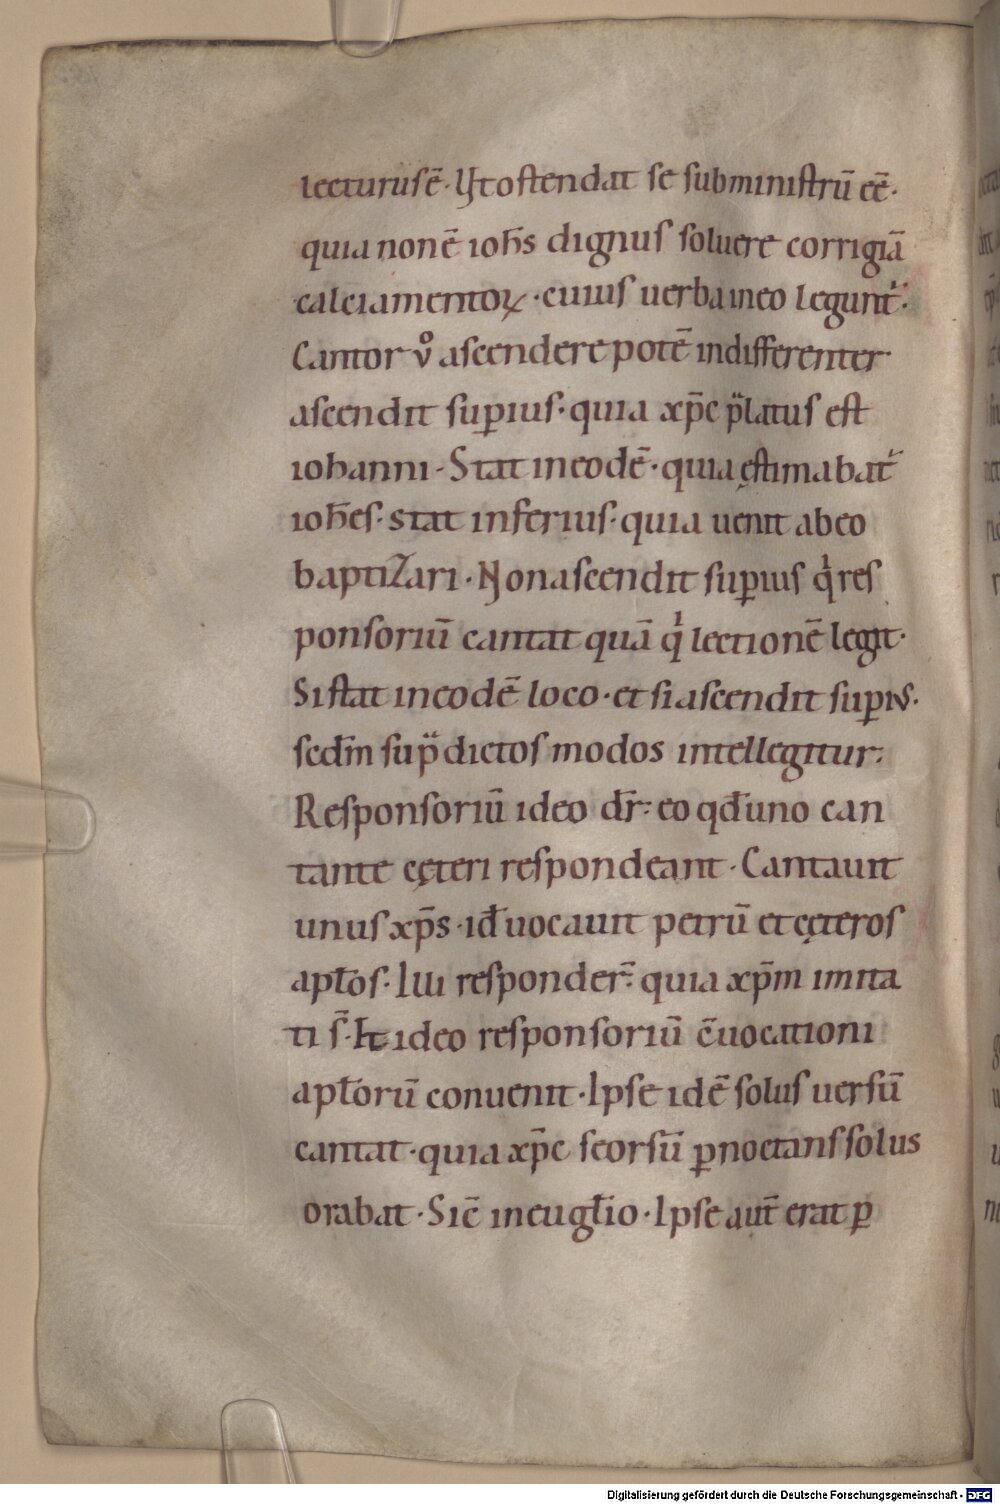 lecturus ē· Ut ostendat se subministrū eē·
quia non ē ioħs dignus soluere corrigiā
calciamentoꝝ· cuius uerba in eo legunt᷑·
Cantor v̊ ascendere potē indifferenter
ascendit suꝑius· quia xp̄c p̈latus est
iohanni· Stat in eodē· quia ęstimabat᷑
ioħes· stat inferius· quia uenit ab eo
baptizari· Non ascendit suꝑius qͥ res
ponsoriū cantat quā qͥ lectionē legit·
Si stat in eodē loco· et si ascendit suꝑius·
secdm̄ sup̈dictos modos intellegitur·
Responsoriū ideo dr̄· eo qđ uno can
tante cęteri respondeant· Cantauit
unus xp̄s· id ÷ uocauit petrū et cęteros
aptōs· Illi responder̄· quia xp̄m imita
ti s̄· Et ideo responsoriū ē uocationi
aptōrū conuenit· Ipse idē solus uersū
cantat· quia xp̄c seorsū ꝑnoctans solus
orabat· Sic̄ in eugłio· Ipse aut̄ erat ꝑ
Digitalisierung gefördert durch die Deutsche Forschungsgemeinschaft - DFG